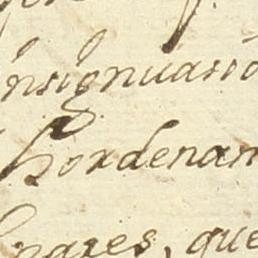 insignuasio
hordenan
pares, que